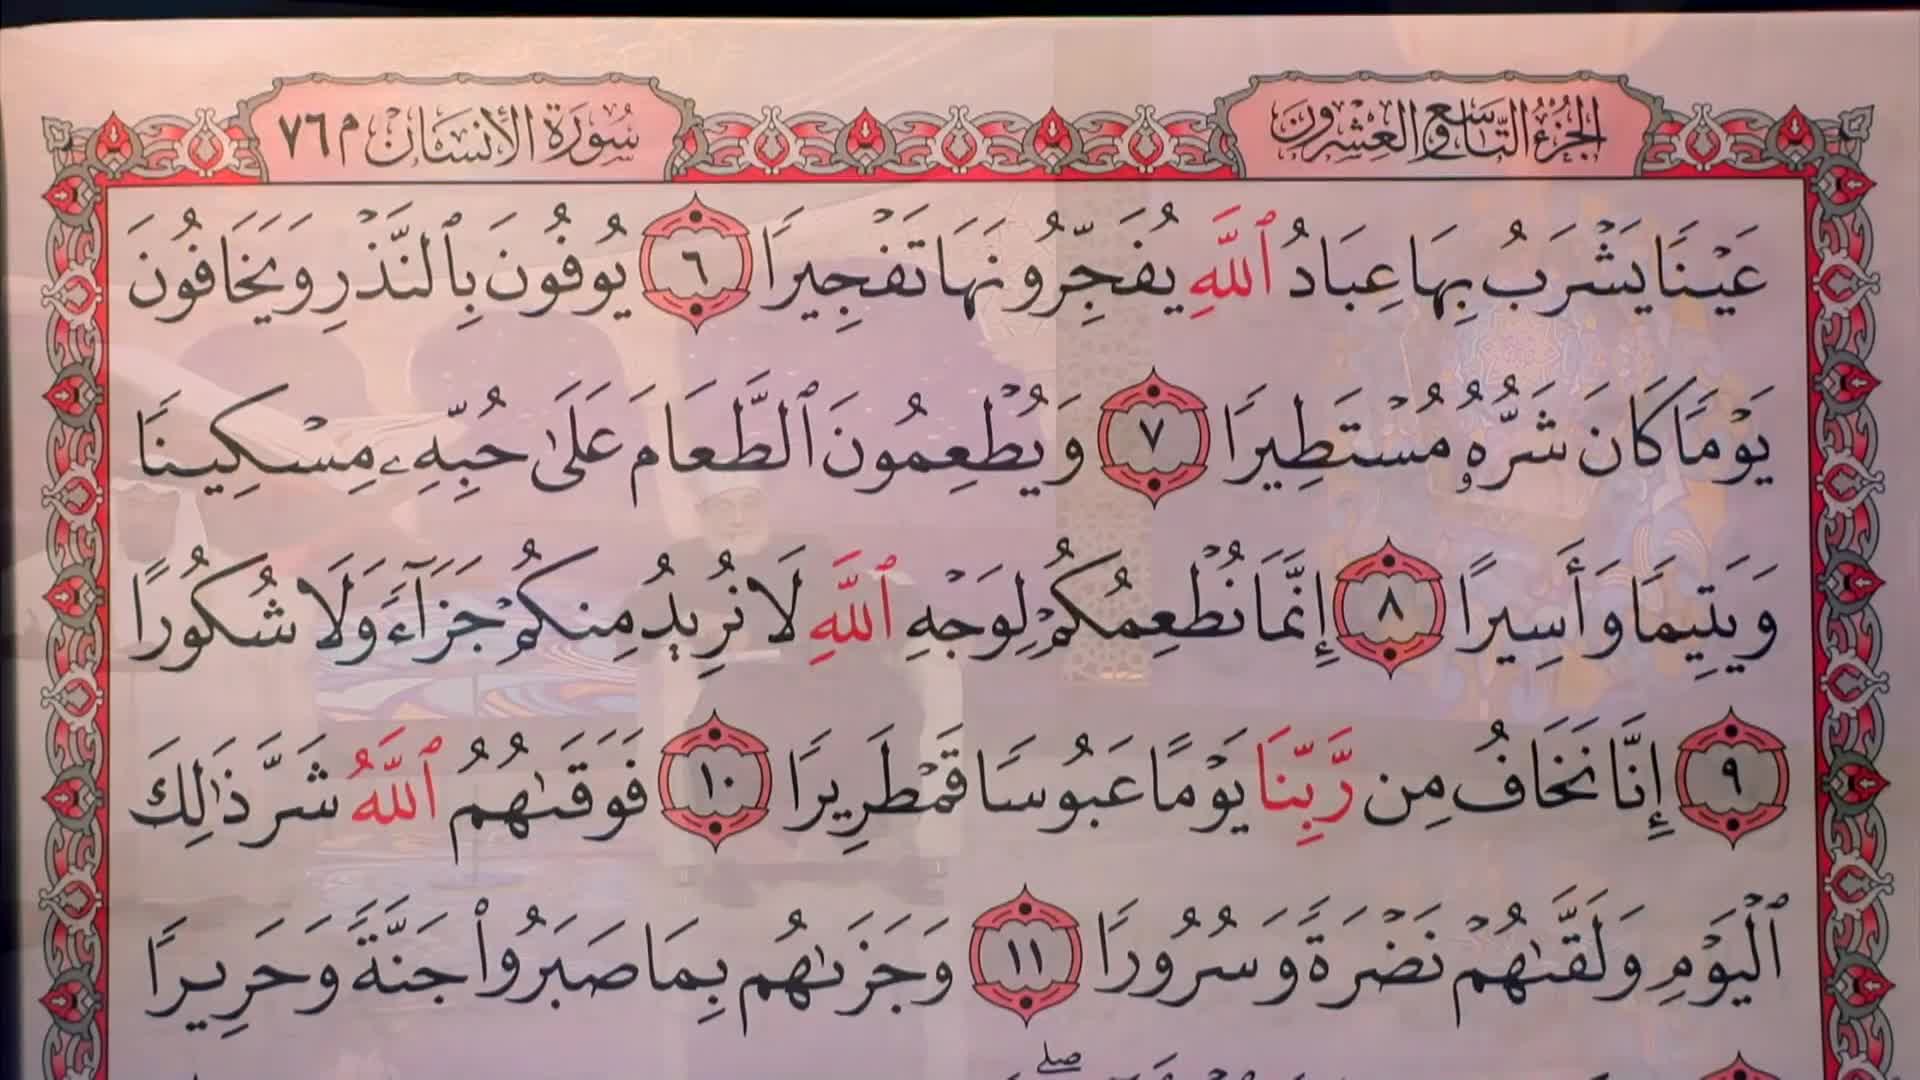 الجزء التاسع والعشرون
سُورَةُ الإنسَان م ٧٦
عَيْنًا يَشْرَبُ بِهَا عِبَادُ ٱللَّهِ يُفَجِّرُونَهَا تَفْجِيرًا ٦ يُوفُونَ بِٱلنَّذْرِ وَيَخَافُونَ
يَوْمًا كَانَ شَرُّهُۥ مُسْتَطِيرًا ٧ وَيُطْعِمُونَ ٱلطَّعَامَ عَلَىٰ حُبِّهِۦ مِسْكِينًا
وَيَتِيمًا وَأَسِيرًا ٨ إِنَّمَا نُطْعِمُكُمْ لِوَجْهِ ٱللَّهِ لَا نُرِيدُ مِنكُمْ جَزَآءً وَلَا شُكُورًا
٩ إِنَّا نَخَافُ مِن رَّبِّنَا يَوْمًا عَبُوسًا قَمْطَرِيرًا ١٠ فَوَقَىٰهُمُ ٱللَّهُ شَرَّ ذَٰلِكَ
ٱلْيَوْمِ وَلَقَّىٰهُمْ نَضْرَةً وَسُرُورًا ١١ وَجَزَىٰهُم بِمَا صَبَرُوا۟ جَنَّةً وَحَرِيرًا